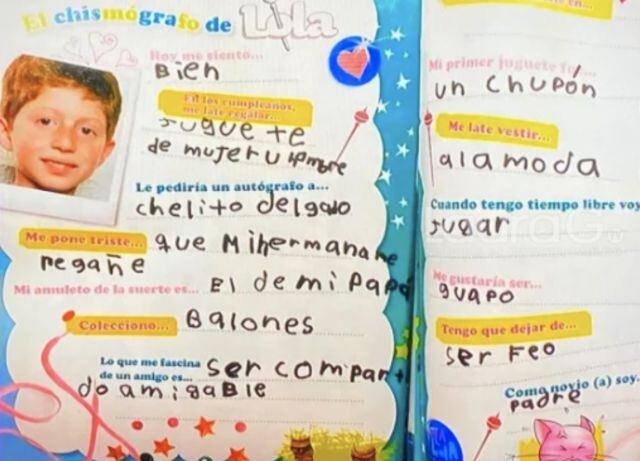 El chismógrafo de Lola
Hoy me siento...
Bien
En los cumpleaños,
me late regalar...
juguete
de mujer u hombre
Le pediría un autógrafo a...
chelito delgado
Me pone triste... que Mi hermana me
regañe
Mi amuleto de la suerte es... El de mi Papá
Colecciono... Balones
Lo que me fascina
de un amigo es... ser compar+
do amigable
en...
Mi primer juguete fu...
un chupón
Me late vestir...
a la moda
Cuando tengo tiempo libre voy
jugar
LauraG
Me gustaría ser...
guapo
Tengo que dejar de...
ser Feo
Como novio (a) soy.
padre